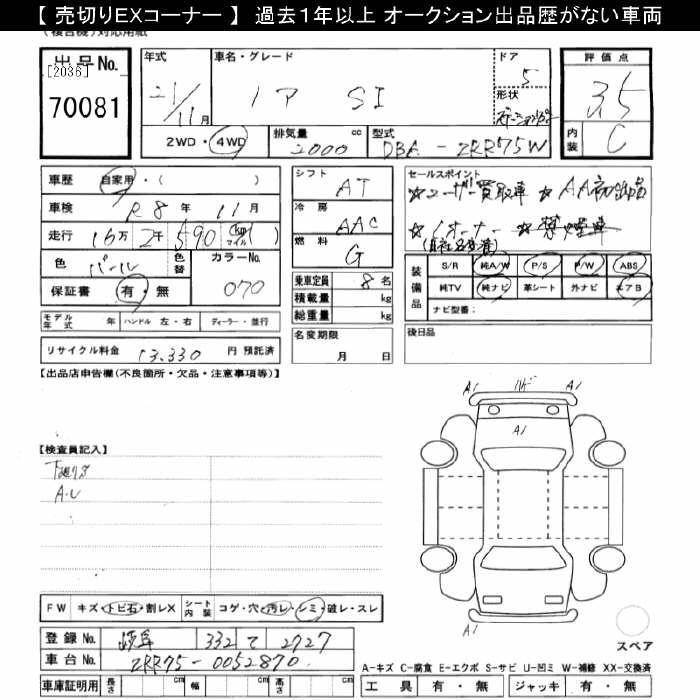 【 売切りEXコーナー 】 過去1年以上 オークション出品歴がない車両
(複合機)対応用紙
出品No.
[2036]
70081
年式
21/11月
車名・グレード
ノア SI
ドア
5
形状
評価点
3.5
内装
C
2WD・4WD
排気量 cc
2000
型式
DBA-ZRR75W
車歴 自家用・( )
車検 R8年11月
走行 16万2千590 (km マイル)
色 パール
色替
カラーNo.
070
保証書 有・無
シフト
AT
冷房
AAC
燃料
G
乗車定員 8名
積載量 kg
総重量 kg
セールスポイント
☆ユーザー買取車 ☆AA初出品
☆1オーナー ☆禁煙車
装備品
S/R 純A/W P/S P/W ABS
純TV 純ナビ 革シート 外ナビ エアB
ナビ型番:
モデル年式 年 ハンドル 左・右 ディーラー・並行
リサイクル料金 13.330 円 預託済
名変期限
月 日
後日品
【出品店申告欄(不良箇所・欠品・注意事項等)】
A1 A1
A1
【検査員記入】
下廻りS
A.U
A1
FW キズ・トビ石・割レX
シート内装 コゲ・穴・汚レ・シミ・破レ・スレ
登録No. 岐阜 332 て 2727
車台No. ZRR75-0052870
スペア
A-キズ C-腐食 E-エクボ S-サビ U-凹ミ W-補修 XX-交換済
車庫証明用 長さ cm 幅 cm 高さ cm
工具 有・無 ジャッキ 有・無